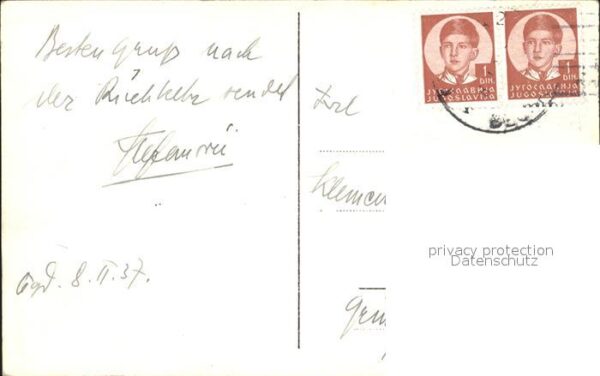 Besten Gruß nach
der Rückkehr sendet
Stefanović
8. II. 37.
Frl
Klemen
1
DIN.
ЈУГОСЛАВИЈА
JUGOSLAVIJA
1
DIN.
ЈУГОСЛАВИЈА
JUGOSLAVIJA
privacy protection
Datenschutz